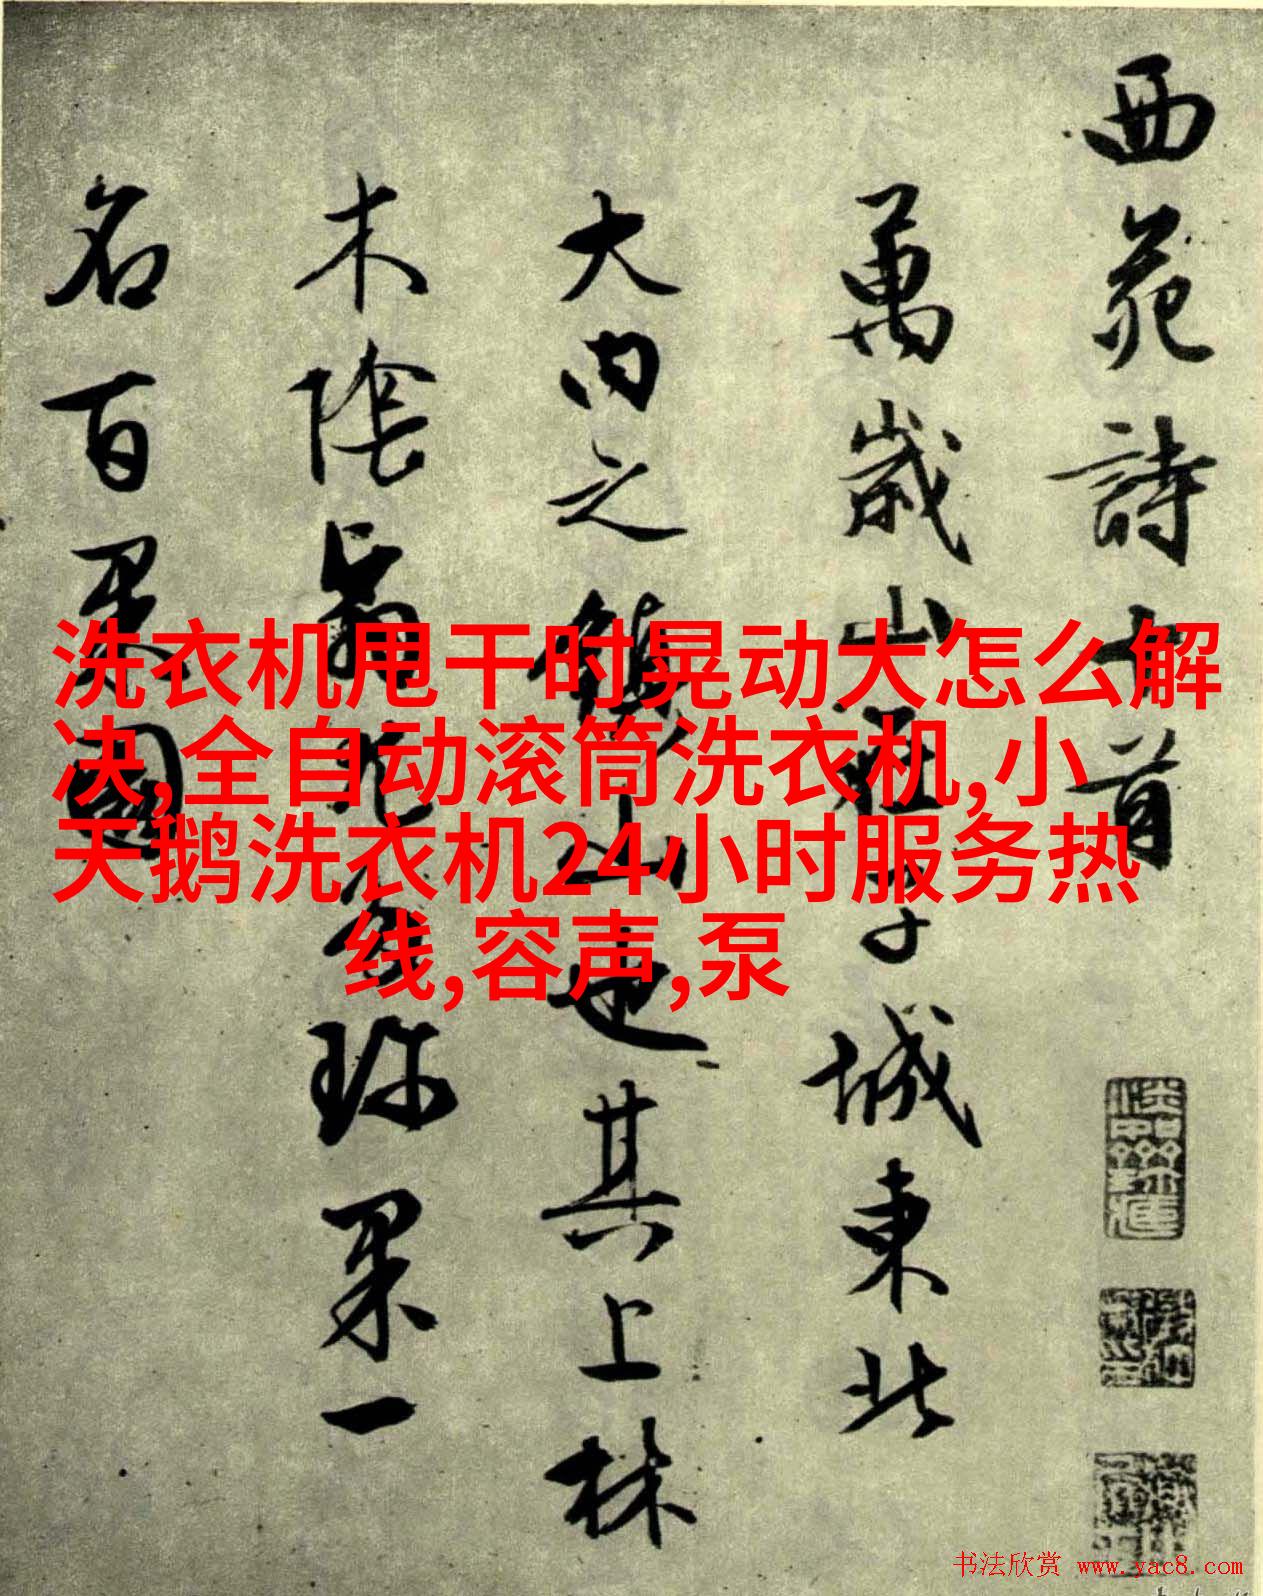 西苑詩十首
萬歲山在子城東北
大内之鎮山也其上林
木陰翳尤多珍果一
名百果園
洗衣机甩干时晃动大怎么解
决,全自动滚筒洗衣机,小
天鹅洗衣机24小时服务热
线,容声,泵
书法欣赏 www.yac8.com